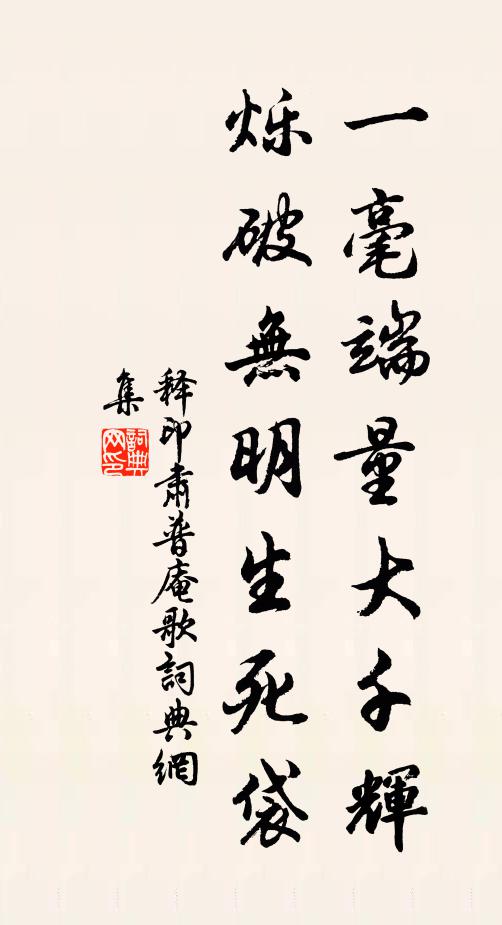 一毫端量大千輝
烁破無明生死袋
释印肅普庵歌詞典網
集
詞典网印